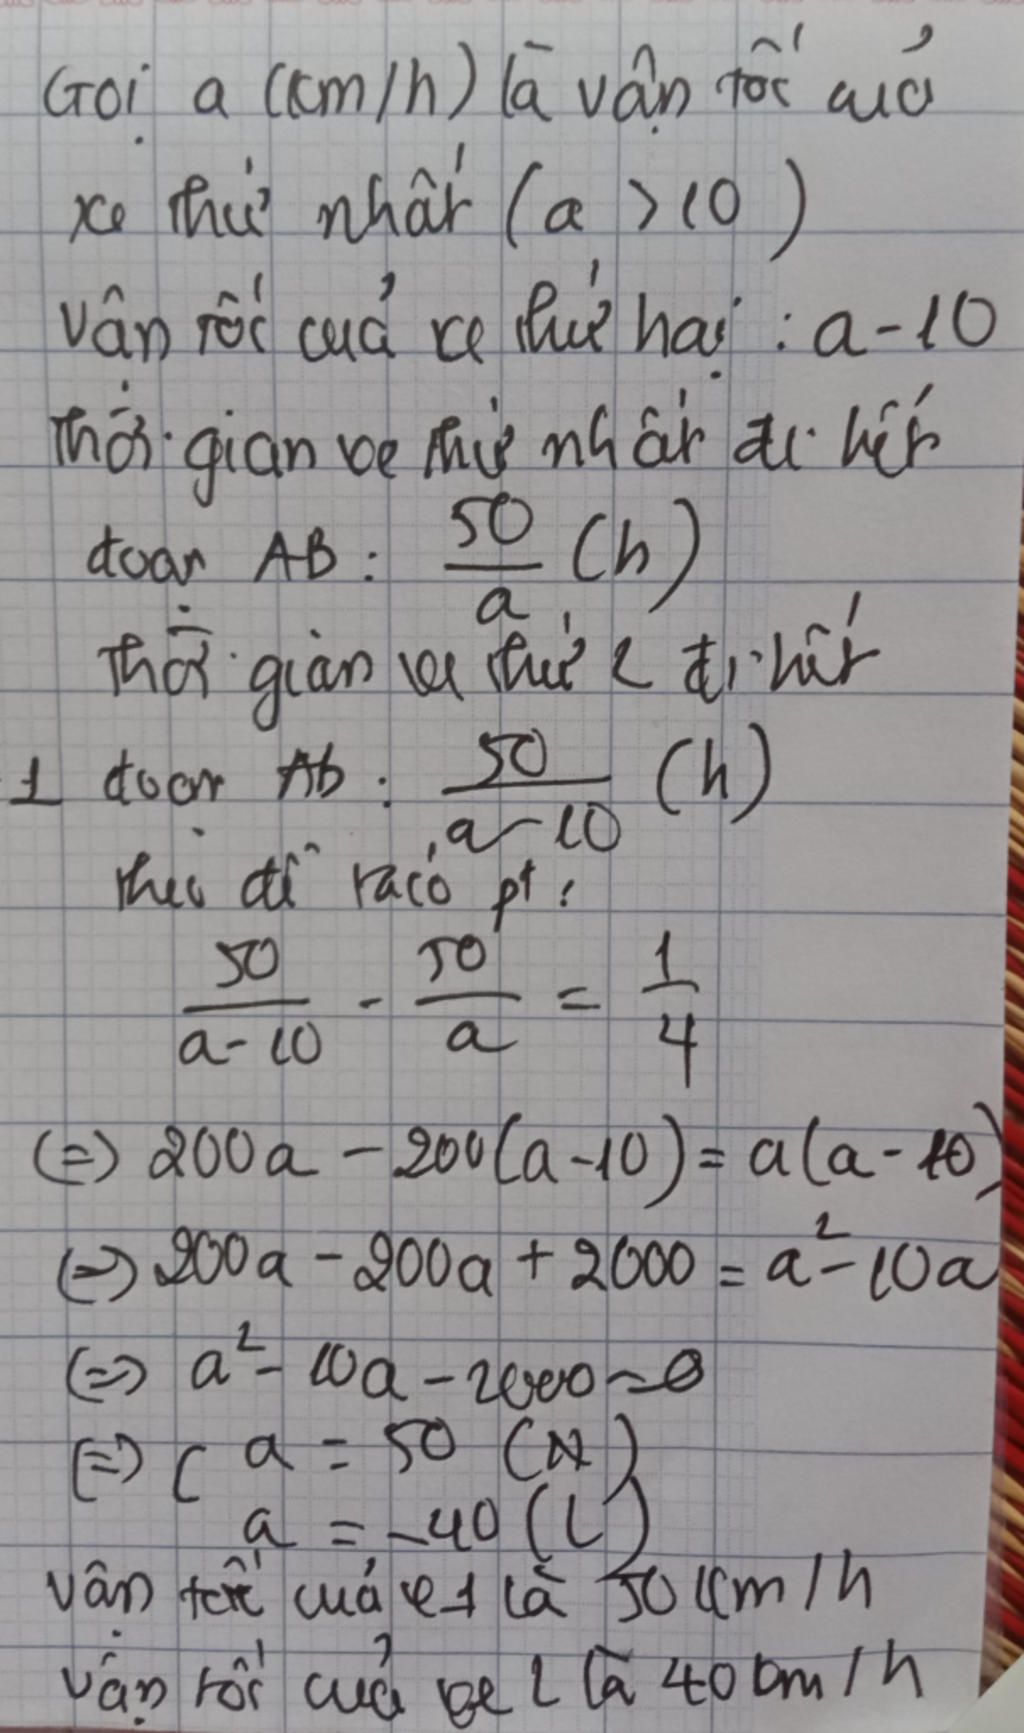 Gọi a (km/h) là vận tốc của
xe thứ nhất (a > 10)
Vận tốc của xe thứ hai : a - 10
Thời gian xe thứ nhất đi hết
đoạn AB : 50/a (h)
Thời gian xe thứ 2 đi hết
1 đoạn Ab : 50/(a - 10) (h)
Theo đề ta có pt :
50/(a - 10) - 50/a = 1/4
(=) 200a - 200(a - 10) = a(a - 10)
(=) 200a - 200a + 2000 = a² - 10a
(=) a² - 10a - 2000 = 0
(=) [ a = 50 (N)
a = -40 (L)
Vận tốc của xe 1 là 50 km/h
Vận tốc của xe 2 là 40 km/h